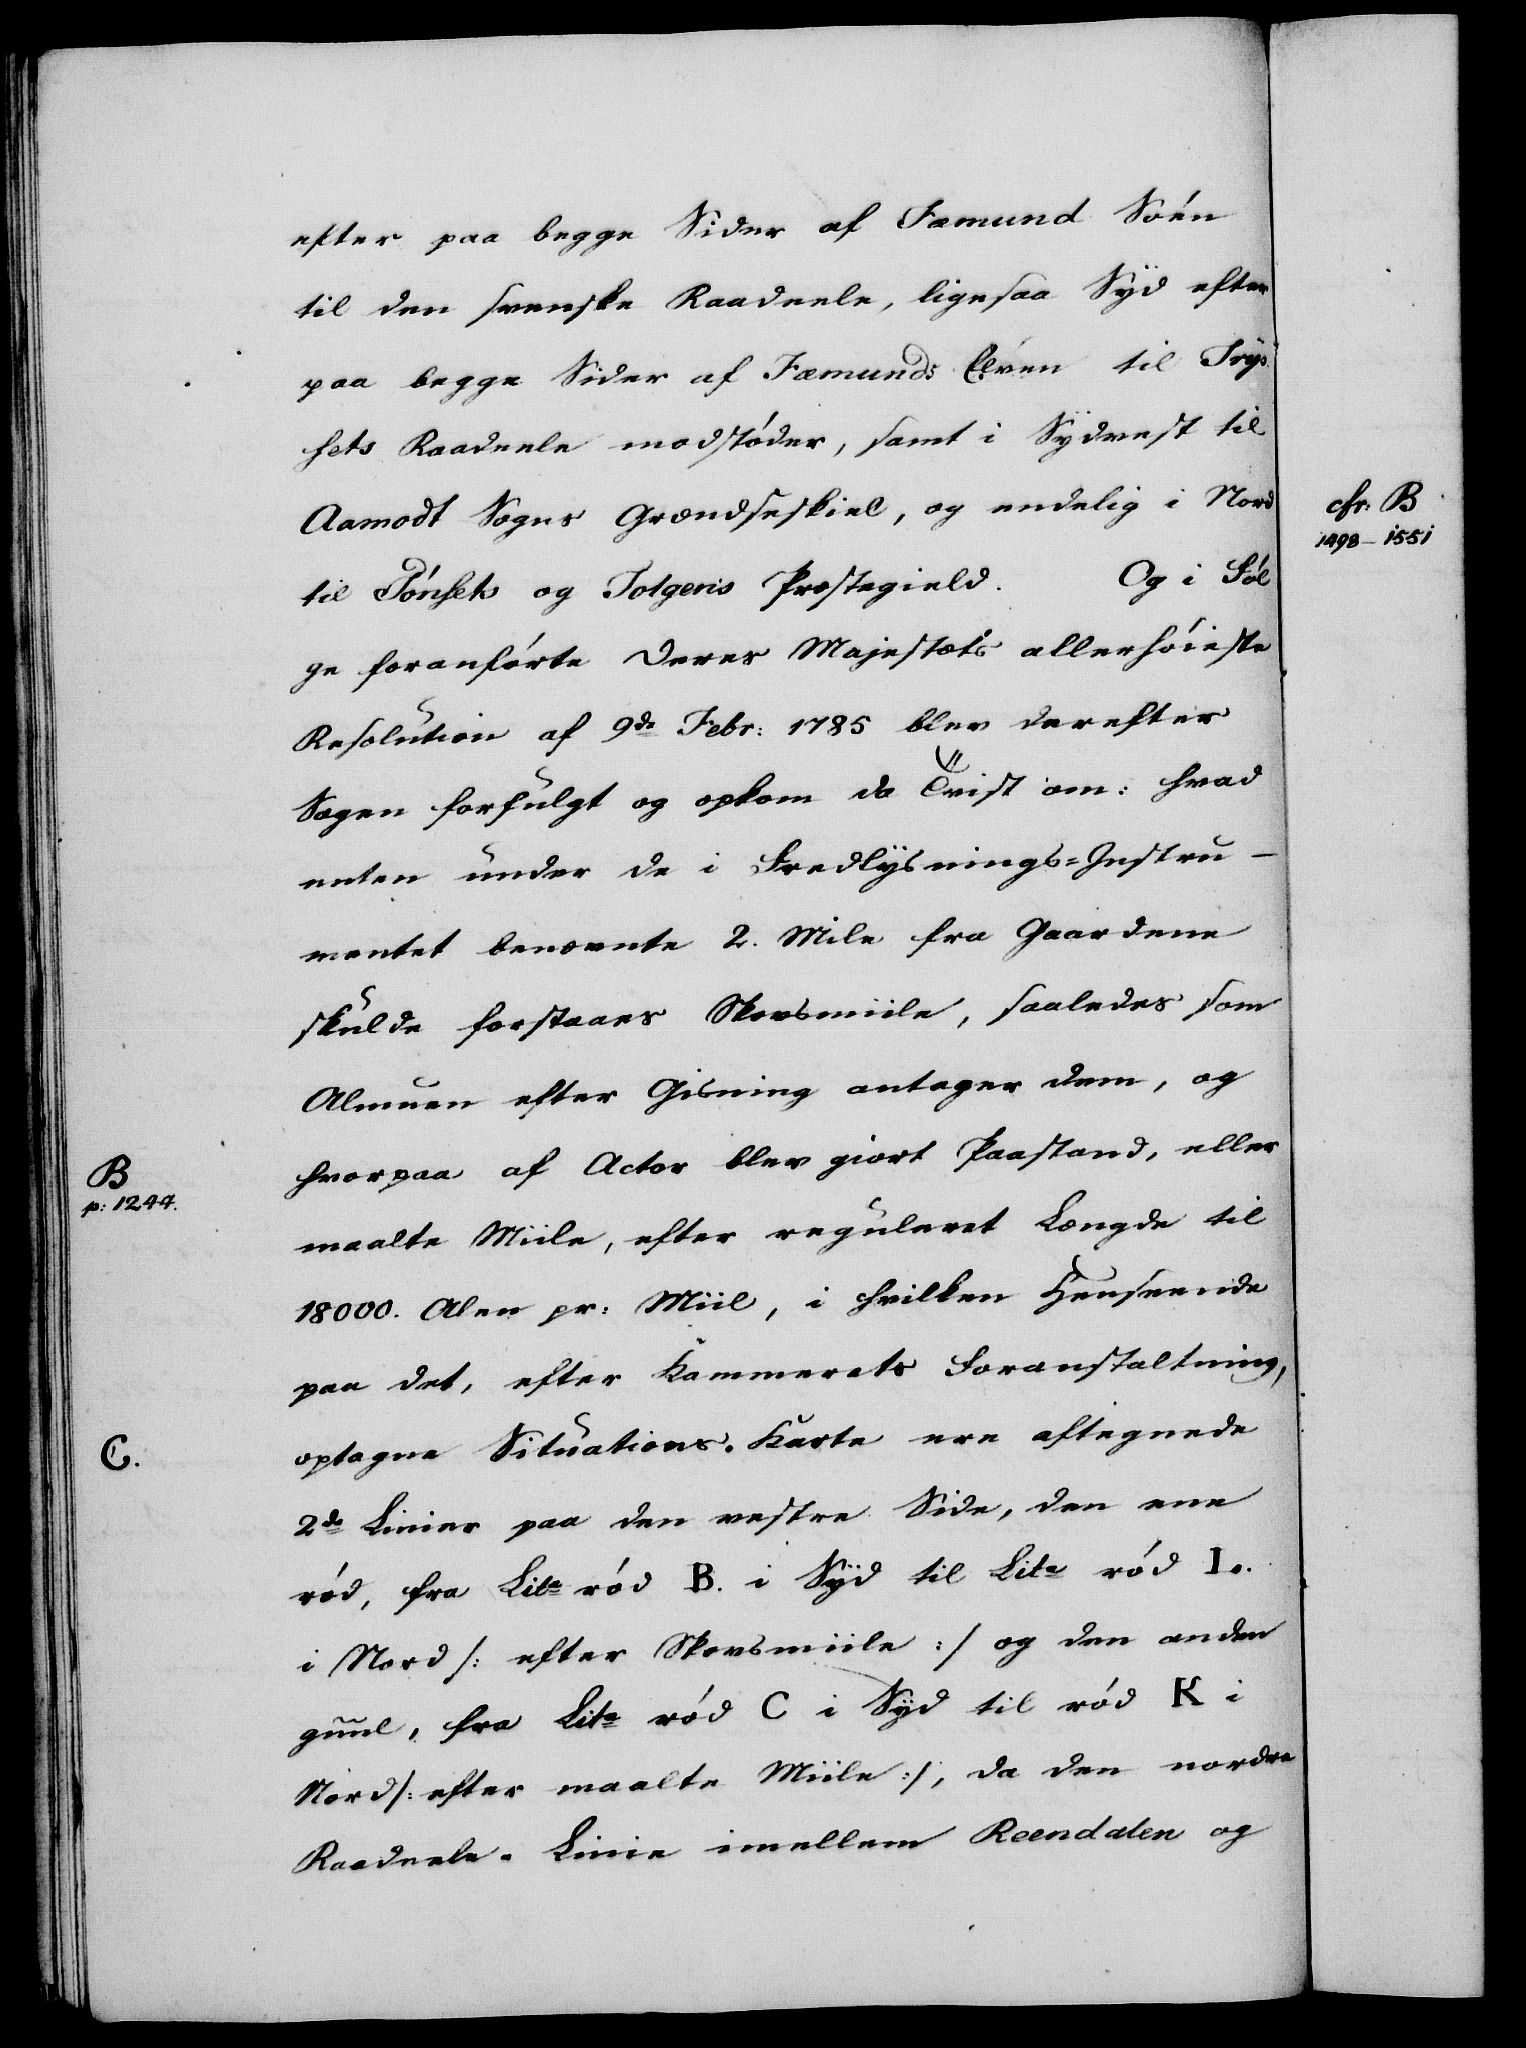 efter paa begge Sider af Fæmund Söen
til den svenske Raadeele, ligesaa Syd efter
paa begge Sider af Fæmunds Elven til Trys-
sets Raadeele modstöder, samt i Sydvest til
Aamodt Sogns Grændseskiel, og endelig i Nord
cfr. B
1498-1551
til Tönsets og Tolgens Præstegield. Og i Föl
ge foranförte Deres Majestæts allerhöieste
Resolution af 9de Febr: 1785 blev derefter
Sagen forfulgt og opkom da Tvist om: hvad
enten under de i Fredlysnings=Instru-
mentet benævnte 2. Mile fra Gaardene
skulde forstaaes Skovsmiile, saaledes som
Almuen efter Gisning antager dem, og
B
p: 1244.
hvorpaa af Actor blev giort Paastand, eller
maalte Miile, efter reguleret Længde til
18000. Alen pr: Miil, i hvilken Henseende
paa det, efter Kammerets Foranstaltning,
C.
optagne Situations-Karte ere aftegnede
2de Linier paa den vestre Side, den ene
röd, fra Lita röd B. i Syd til Lita röd I.
i Nord /: efter Skovsmiile :/ og den anden
guul, fra Lita röd C i Syd til röd K i
Nord /: efter maalte Miile :/, da den nordre
Raadeele-Linie imellem Reendalen og